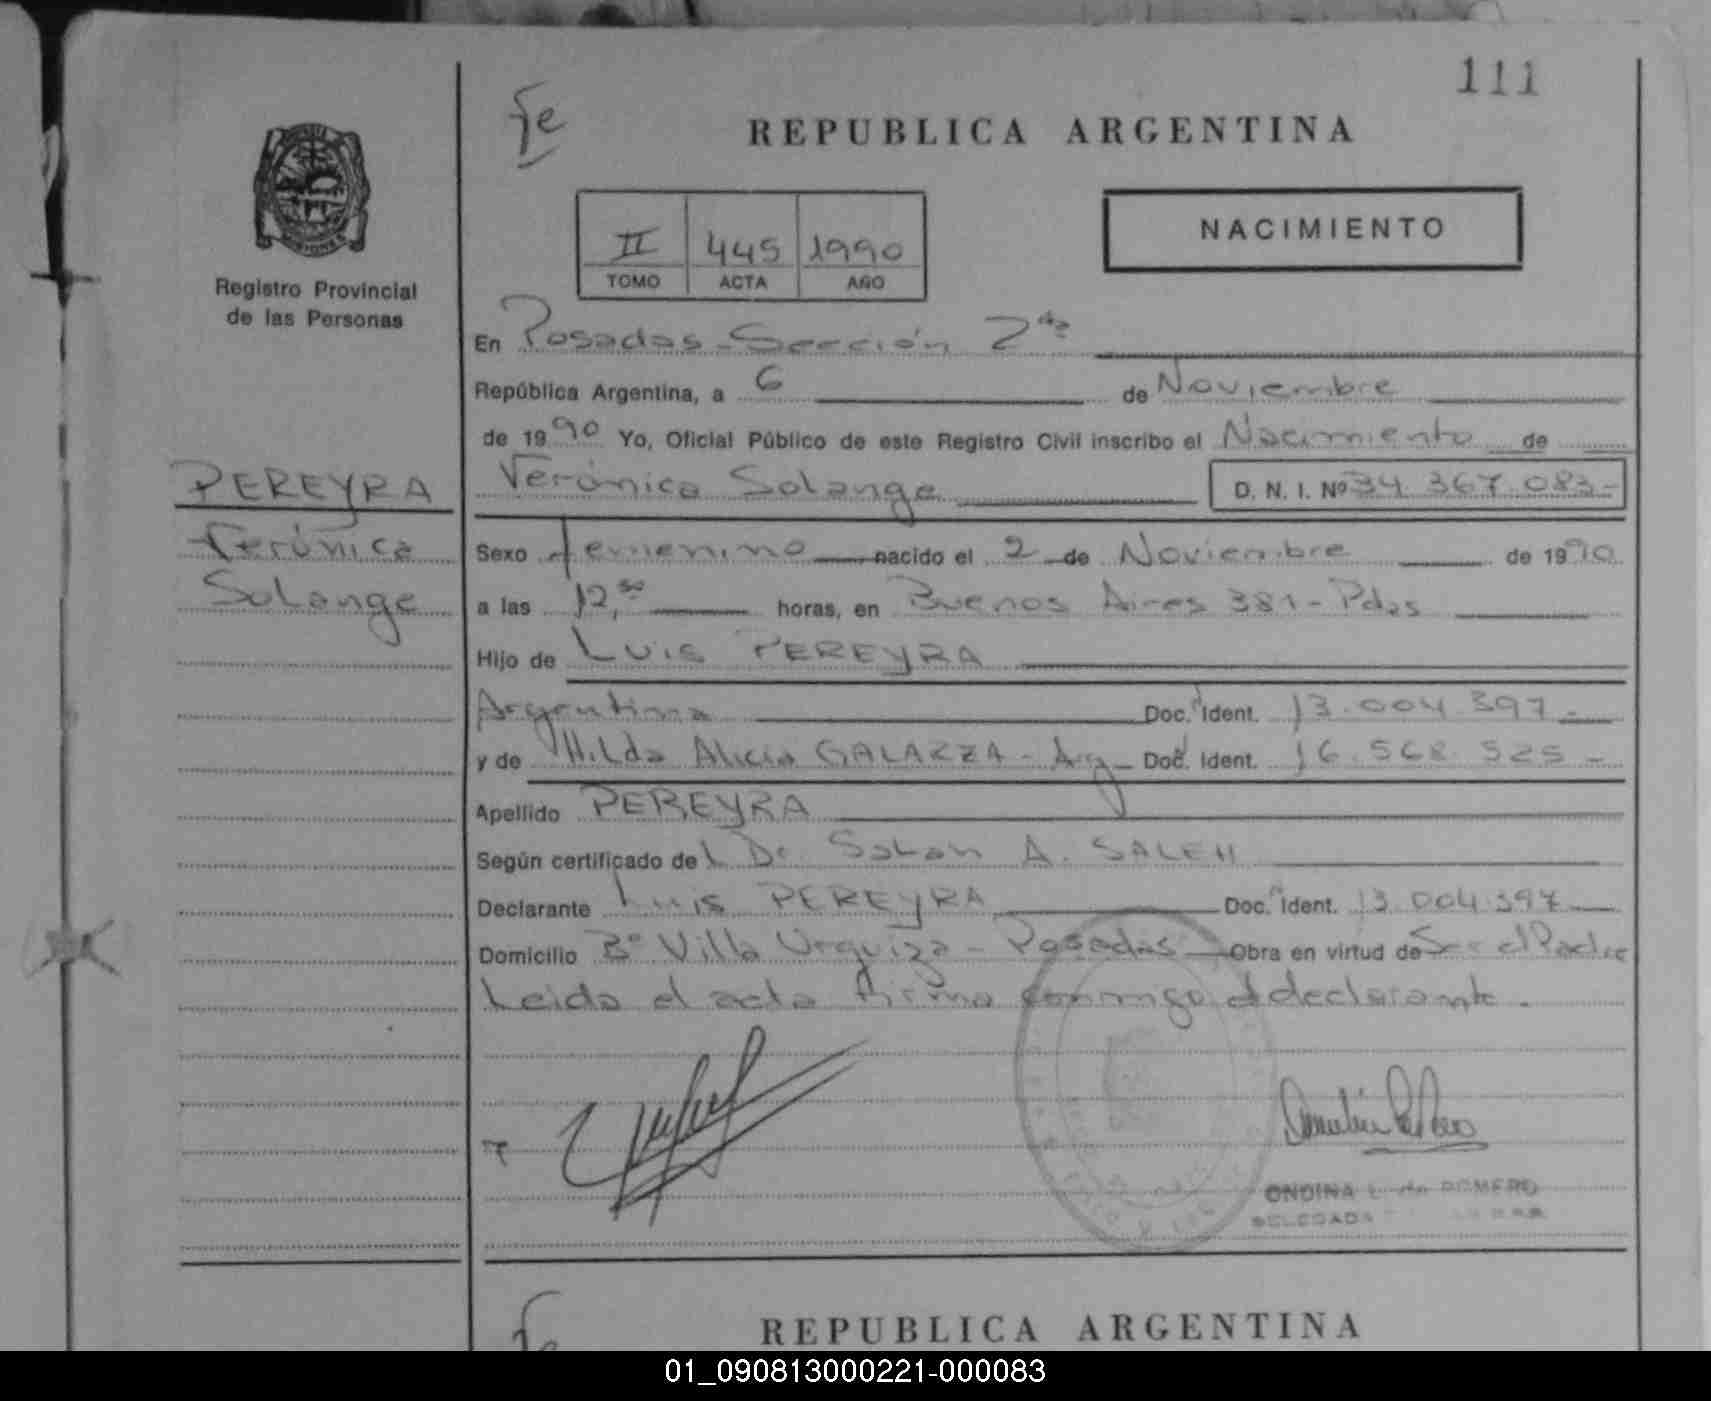 111
fe
REPUBLICA ARGENTINA
NACIMIENTO
II 445 1990
TOMO ACTA AÑO
MISIONES
Registro Provincial
de las Personas
En Posadas - Sección 2da
República Argentina, a 6 de Noviembre
de 1990 Yo, Oficial Público de este Registro Civil inscribo el Nacimiento de
PEREYRA
Verónica Solange D. N. I. Nº 34.367.083-
Verónica
Solange
Sexo femenino nacido el 2 de Noviembre de 1990
a las 12,30 horas, en Buenos Aires 381 - Pdas
Hijo de Luis PEREYRA
Argentina Doc. Ident. 13.004.397-
y de Hilda Alicia GALARZA - Arg Doc. Ident. 16.568.525-
Apellido PEREYRA
Según certificado del Dr. A. SALEH
Declarante Luis PEREYRA Doc. Ident. 13.004.397
Domicilio Bº Villa Urquiza - Posadas Obra en virtud de Ser el Padre
Leida el acta firma conmigo el declarante.
ONDINA L. de ROMERO
DELEGADA
fe
REPUBLICA ARGENTINA
01_090813000221-000083